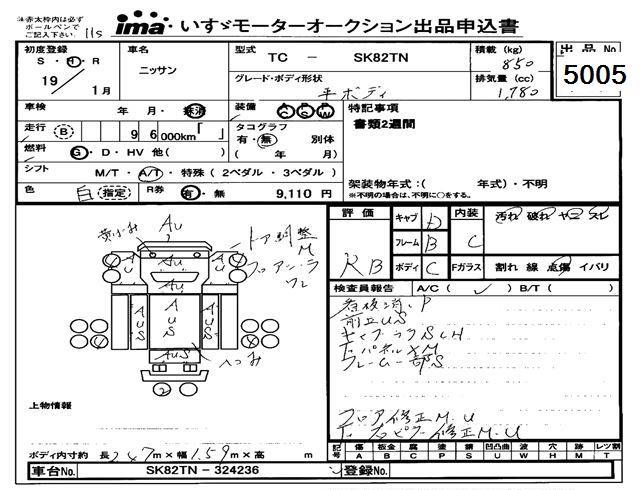 ※赤太枠内は必ず
ボールペンで
ご記入下さい
11s
ima いすゞモーターオークション出品申込書
初度登録
S・H・R
19 / 1月
車名
ニッサン
型式 TC - SK82TN
グレード・ボディ形状
平ボディ
積載 (kg)
850
排気量 (cc)
1,780
出品No
5005
車検 年・月・抹消
装備 AC PS PW
特記事項
書類2週間
走行 (B) 96000km「 」
タコグラフ
有・無 別体
( 年 月)
燃料 G・D・HV 他( )
シフト M/T・A/T・特殊(2ペダル・3ペダル)
架装物年式:( 年式)・不明
※不明の場合は、不明に○をする。
色 白(指定)
R券 有・無 9,110 円
評価 RB
キャブ D
フレーム B
ボディ C
内装 C
汚れ 破れ ヤニ スレ
Fガラス 割れ 線 点傷 イバリ
AU
ドア調整
M
AU
AUS
AUS
AUS
AUS
ヘコミ
検査員報告 A/C( ✓ ) B/T( )
看板消.P
前立US
フレーム一部S
フロア修正M.U
上物情報
ボディ内寸約 長 2.47m×幅 1.59m×高 m
記号
傷 板金 腐 塗 錆 凹凸曲 波 穴 跡 レンズ割
A B C P S U W H M T
車台No. SK82TN-324236
登録No.